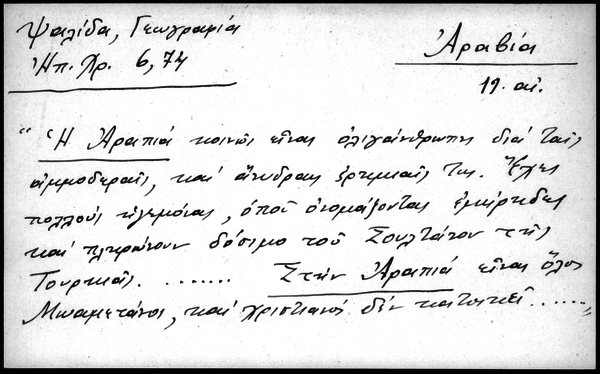 Ψαλίδα, Γεωγραφία
Ἠπ. Χρ. 6, 74
Ἀραβία
19. αἰ.
"Ἡ Ἀραπιά κοινῶς εἶναι ὀλιγάνθρωπη διά ταῖς
ἀμμοδεραῖς, καί ἄνυδραις ἐρημιαῖς της. Ἔχει
πολλούς ἡγεμόνας, ὁποῦ ὀνομάζονται ἐμίρηδες
καί πληρώνουν δόσιμο τοῦ Σουλτάνου τῆς
Τουρκιᾶς. ....... Στήν Ἀραπιά εἶναι ὅλοι
Μωαμετάνοι, καί χριστιανοί δέν κατοικεῖ ......"